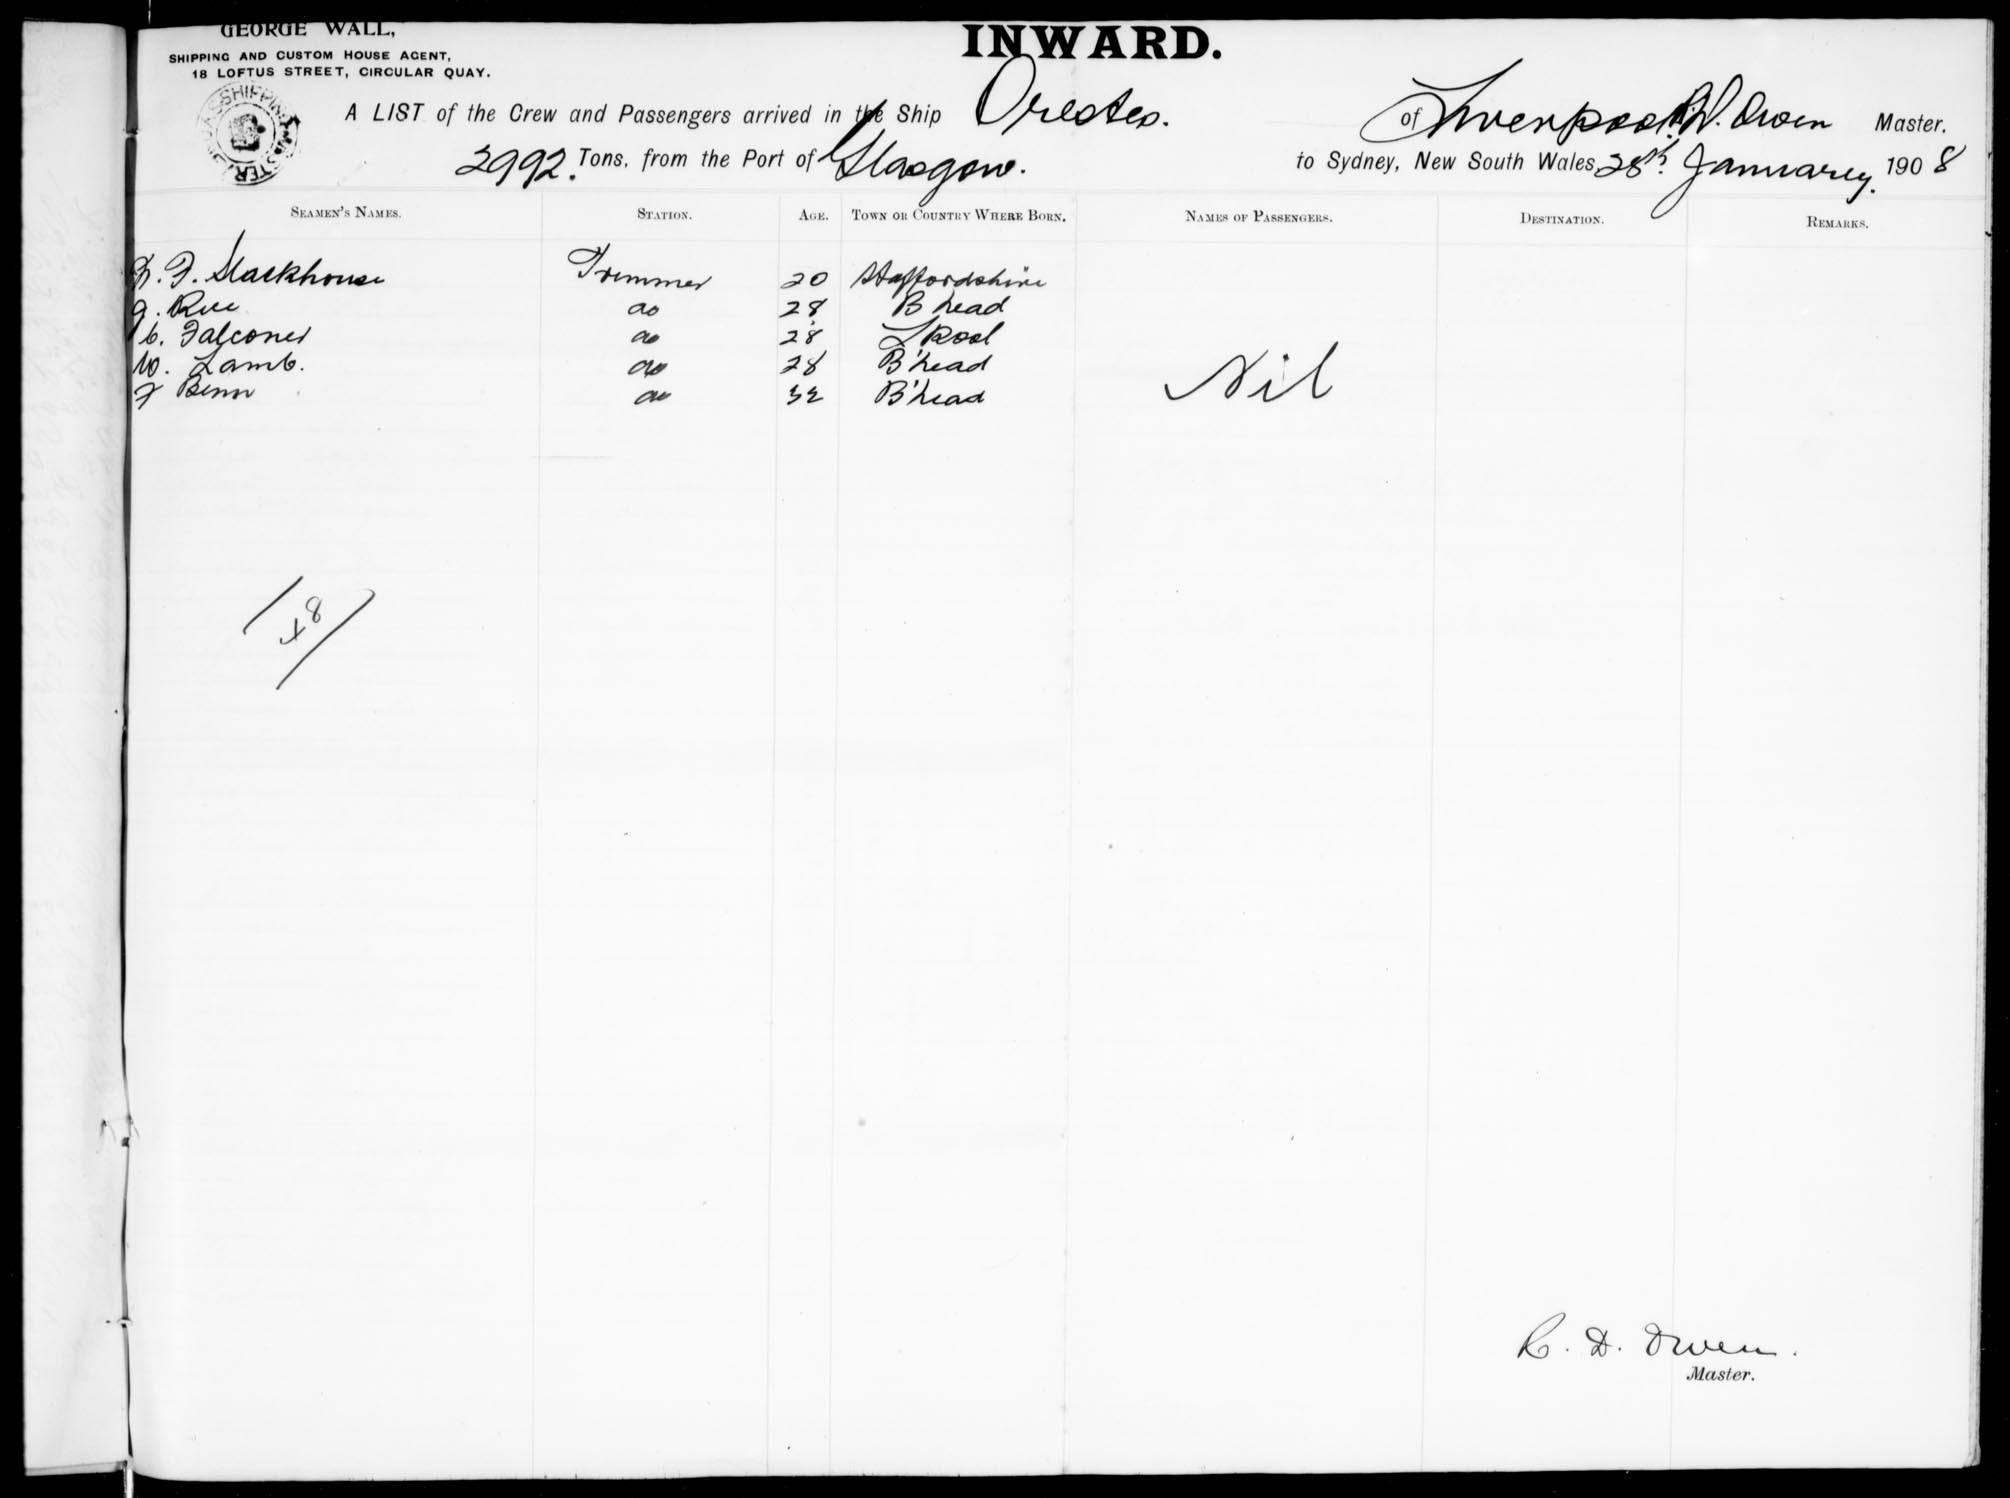 GEORGE WALL,
SHIPPING AND CUSTOM HOUSE AGENT,
18 LOFTUS STREET, CIRCULAR QUAY.
INWARD.
SHIPPING MASTER
A LIST of the Crew and Passengers arrived in the Ship Orestes. of Liverpool. R.D. Owen Master.
2992. Tons, from the Port of Glasgow. to Sydney, New South Wales 28th January. 1908
SEAMEN'S NAMES. STATION. AGE. TOWN OR COUNTRY WHERE BORN. NAMES OF PASSENGERS. DESTINATION. REMARKS.
F. Stackhouse Trimmer 20 Staffordshire
do 28 B'head
C. Falconer do 28 L'pool
W. Lamb. do 28 B'head
F Benn do 32 B'head
Nil
R. D. Owen.
Master.